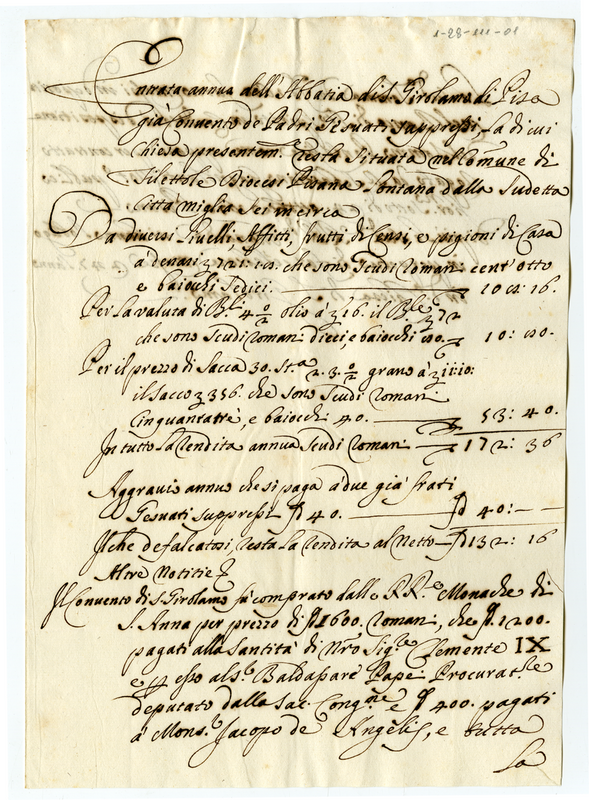 1-28-111-01
Entrata annua dell'Abbatia di S. Girolamo di Pisa
già Convento de Padri Gesuati suppressi, la di cui
Chiesa presentem.te resta situata nel Comune di
Filettole Diocesi Pisana lontana dalla sudetta
Città miglia sei in circa
Da diversi livelli, Affitti, frutti di Censi, e pigioni di Casa
à denari che sono scudi Romani cent'otto
e baiochi sedici 108: 16.
Per la valuta di B.li 4 0/2 olio à 16. il B.le 72
che sono scudi Romani dieci, e baiochi 80. 10: 80.
Per il prezzo di Sacca 30. St.a 2. 3. 0/2 grano à 11:10:
il Sacco 356. che sono scudi Romani
Cinquantatrè, e baiochi 40. 53: 40.
In tutto la Rendita annua scudi Romani 172: 36
Aggravio annuo che si paga à due già frati
Gesuati suppressi 40. 40: —
Il che defalcatosi, resta la Rendita al Netto 132: 16
Altre Notitie
Il Convento di S. Girolamo fù comprato dalle RR.e Monache di
S. Anna per prezzo di 1600. Romani, che 1200.
pagati alla Santità di Nr̃o Sig.re Clemente IX
e p esso al S.e Baldassare Pape Procurat.re
deputato dalla Sac. Cong.ne e 400. pagati
à Mons.e Jacopo de Angelis, e tutta
la